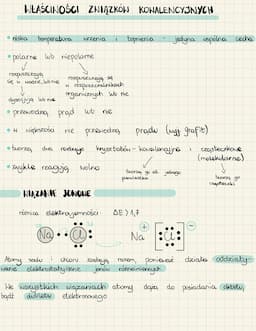 WŁAŚCIWOŚCI ZWIĄZKÓW KOWALENCYJNYCH
• niska temperatura wrzenia i topnienia - jedyna wspólna cecha
• polarne lub niepolarne
rozpuszczają się w wodzie, lub nie
rozpuszczają się w rozpuszczalnikach organicznych lub nie
dysocjują lub nie
• przewodzą prąd lub nie
• w większości nie przewodzą prądu (wyj. grafit)
• tworzą dwa rodzaje kryształów - kowalencyjne i cząsteczkowe (molekularne)
tworzą go
tworzą go cząsteczki
• zwykle reagują wolno
WIĄZANIE JONOWE
różnica elektroujemności ΔE > 1,7
Na Cl Na + Cl -
Atomy sodu i chloru zostają razem, ponieważ działa oddziały-
wanie elektrostatyczne jonów różnoimiennych
We wszystkich wiązaniach atomy dążą do posiadania oktetu
bądź dubletu elektronowego